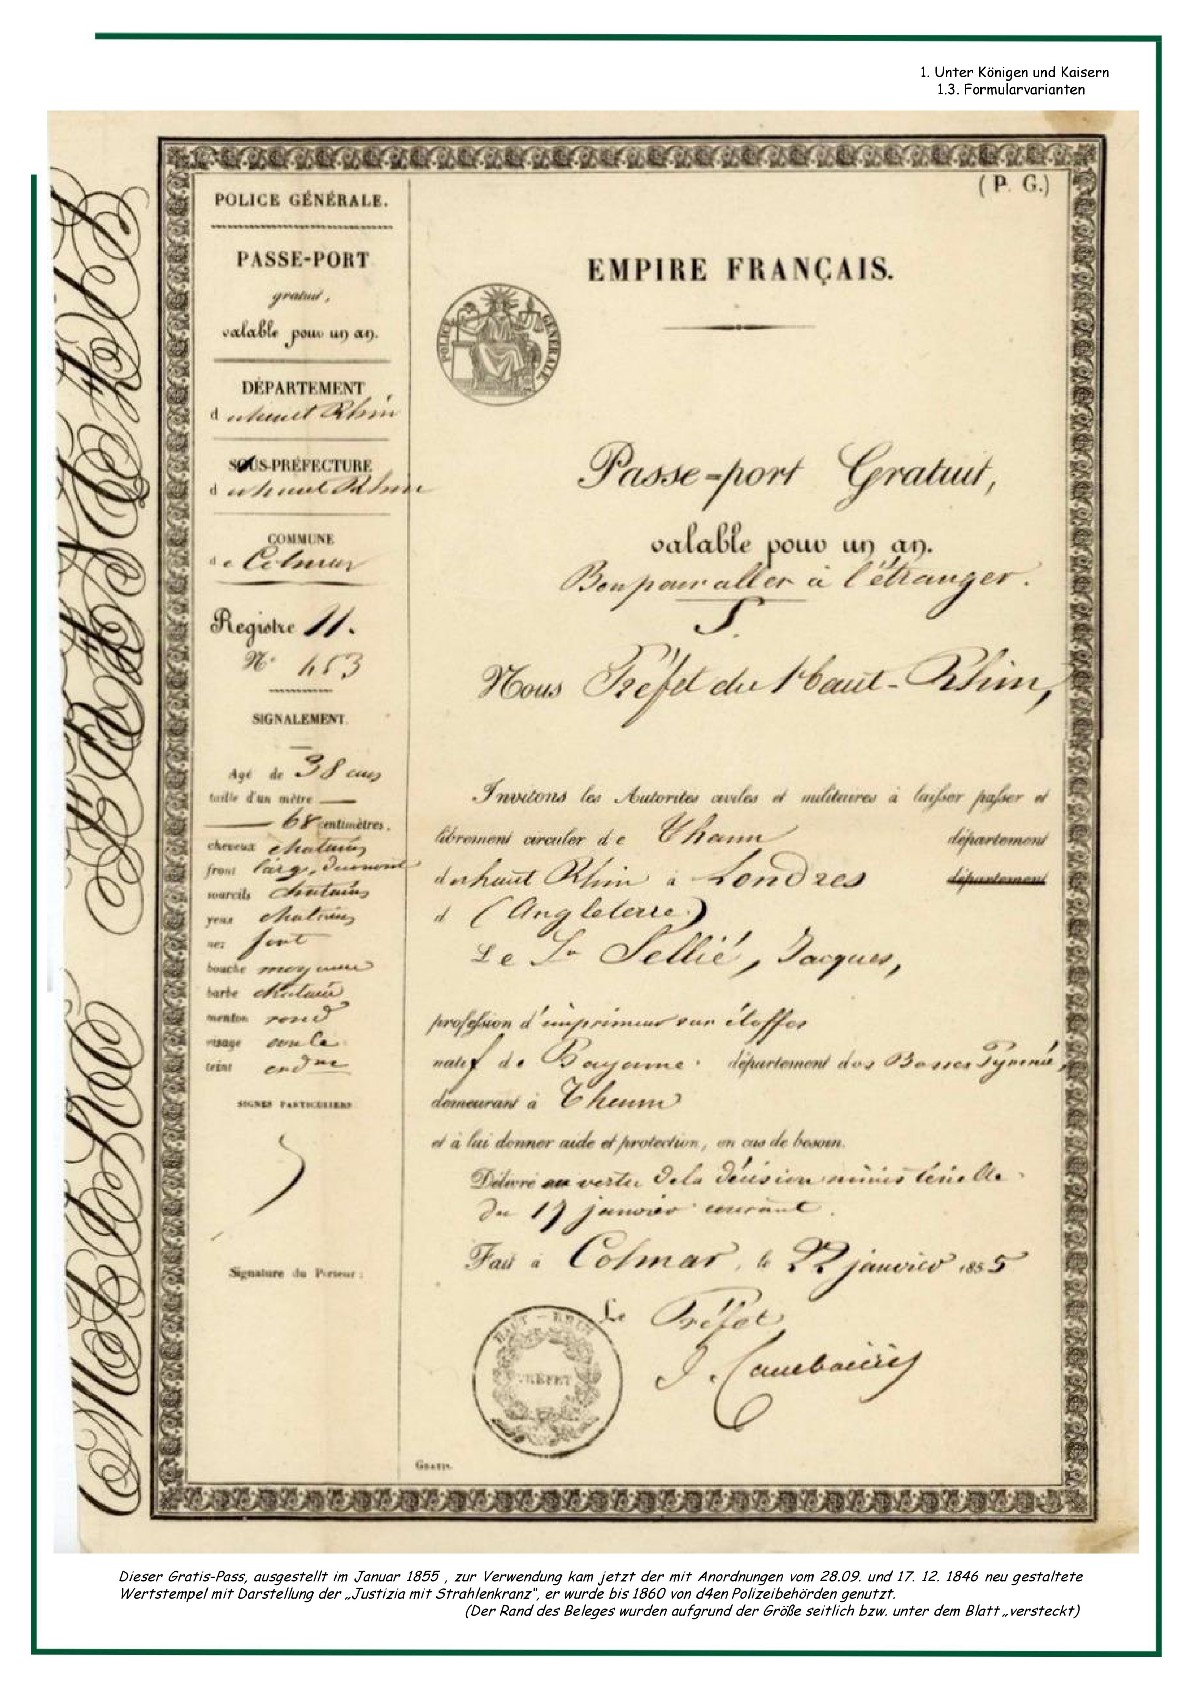 1. Unter Königen und Kaisern
1.3. Formularvarianten
(P. G.)
POLICE GÉNÉRALE.
PASSE-PORT
gratuit,
valable pour un an.
DÉPARTEMENT
d u haut Rhin
SOUS-PRÉFECTURE
d u haut Rhin
COMMUNE
de Colmar
Registre 11.
N° 453
SIGNALEMENT.
Agé de 38 ans
taille d'un mètre
68 centimètres.
cheveux chatains
front large,
sourcils chatains
yeux chatains
nez fort
bouche moyenne
barbe chatain
menton rond
visage ovale
teint
SIGNES PARTICULIERS
Signature du Porteur:
EMPIRE FRANÇAIS.
POLICE GÉNÉRALE
Passe-port Gratuit,
valable pour un an.
Bon pour aller à l'étranger.
Nous Préfet du Haut-Rhin,
Invitons les Autorités civiles et militaires à laisser passer et
librement circuler de Thann département
du haut Rhin à Londres département
d (Angleterre)
Le Sr Sellié, Jacques,
profession d'imprimeur sur étoffes
natif de Bayonne. département des Basses Pyrénées,
demeurant à Thann
et à lui donner aide et protection, en cas de besoin.
Délivré en vertu de la décision ministérielle
du 17 janvier courant.
Fait à Colmar, le 22 janvier 1855
Le Préfet
HAUT-RHIN
PRÉFET
Gratis.
Dieser Gratis-Pass, ausgestellt im Januar 1855 , zur Verwendung kam jetzt der mit Anordnungen vom 28.09. und 17. 12. 1846 neu gestaltete
Wertstempel mit Darstellung der „Justizia mit Strahlenkranz“, er wurde bis 1860 von d4en Polizeibehörden genutzt.
(Der Rand des Beleges wurden aufgrund der Größe seitlich bzw. unter dem Blatt „versteckt)